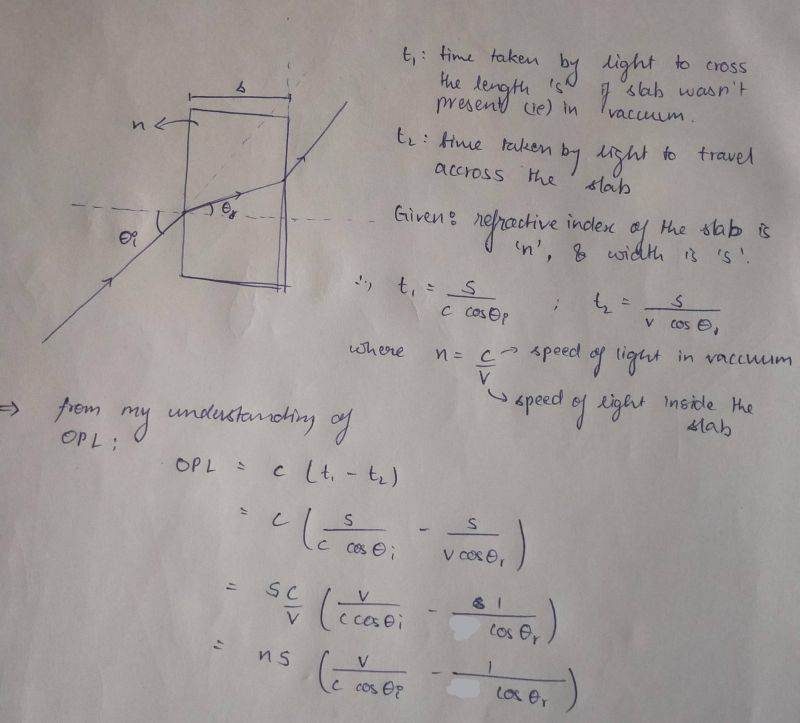 s
n
θi
θr
t₁: time taken by light to cross
the length 's' if slab wasn't
present (ie) in vaccum.
t₂: time taken by light to travel
accross the slab
Given: refractive index of the slab is
'n', & width is 's'.
∴, t₁ = s / (c cosθi) ; t₂ = s / (v cosθr)
where n = c/v → speed of light in vaccuum
↳ speed of light inside the
slab
⇒ from my understanding of
OPL;
OPL = c (t₁ - t₂)
= c ( s / (c cosθi) - s / (v cosθr) )
= s c/v ( v / (c cosθi) - 1 / cosθr )
= ns ( v / (c cosθi) - 1 / cosθr )